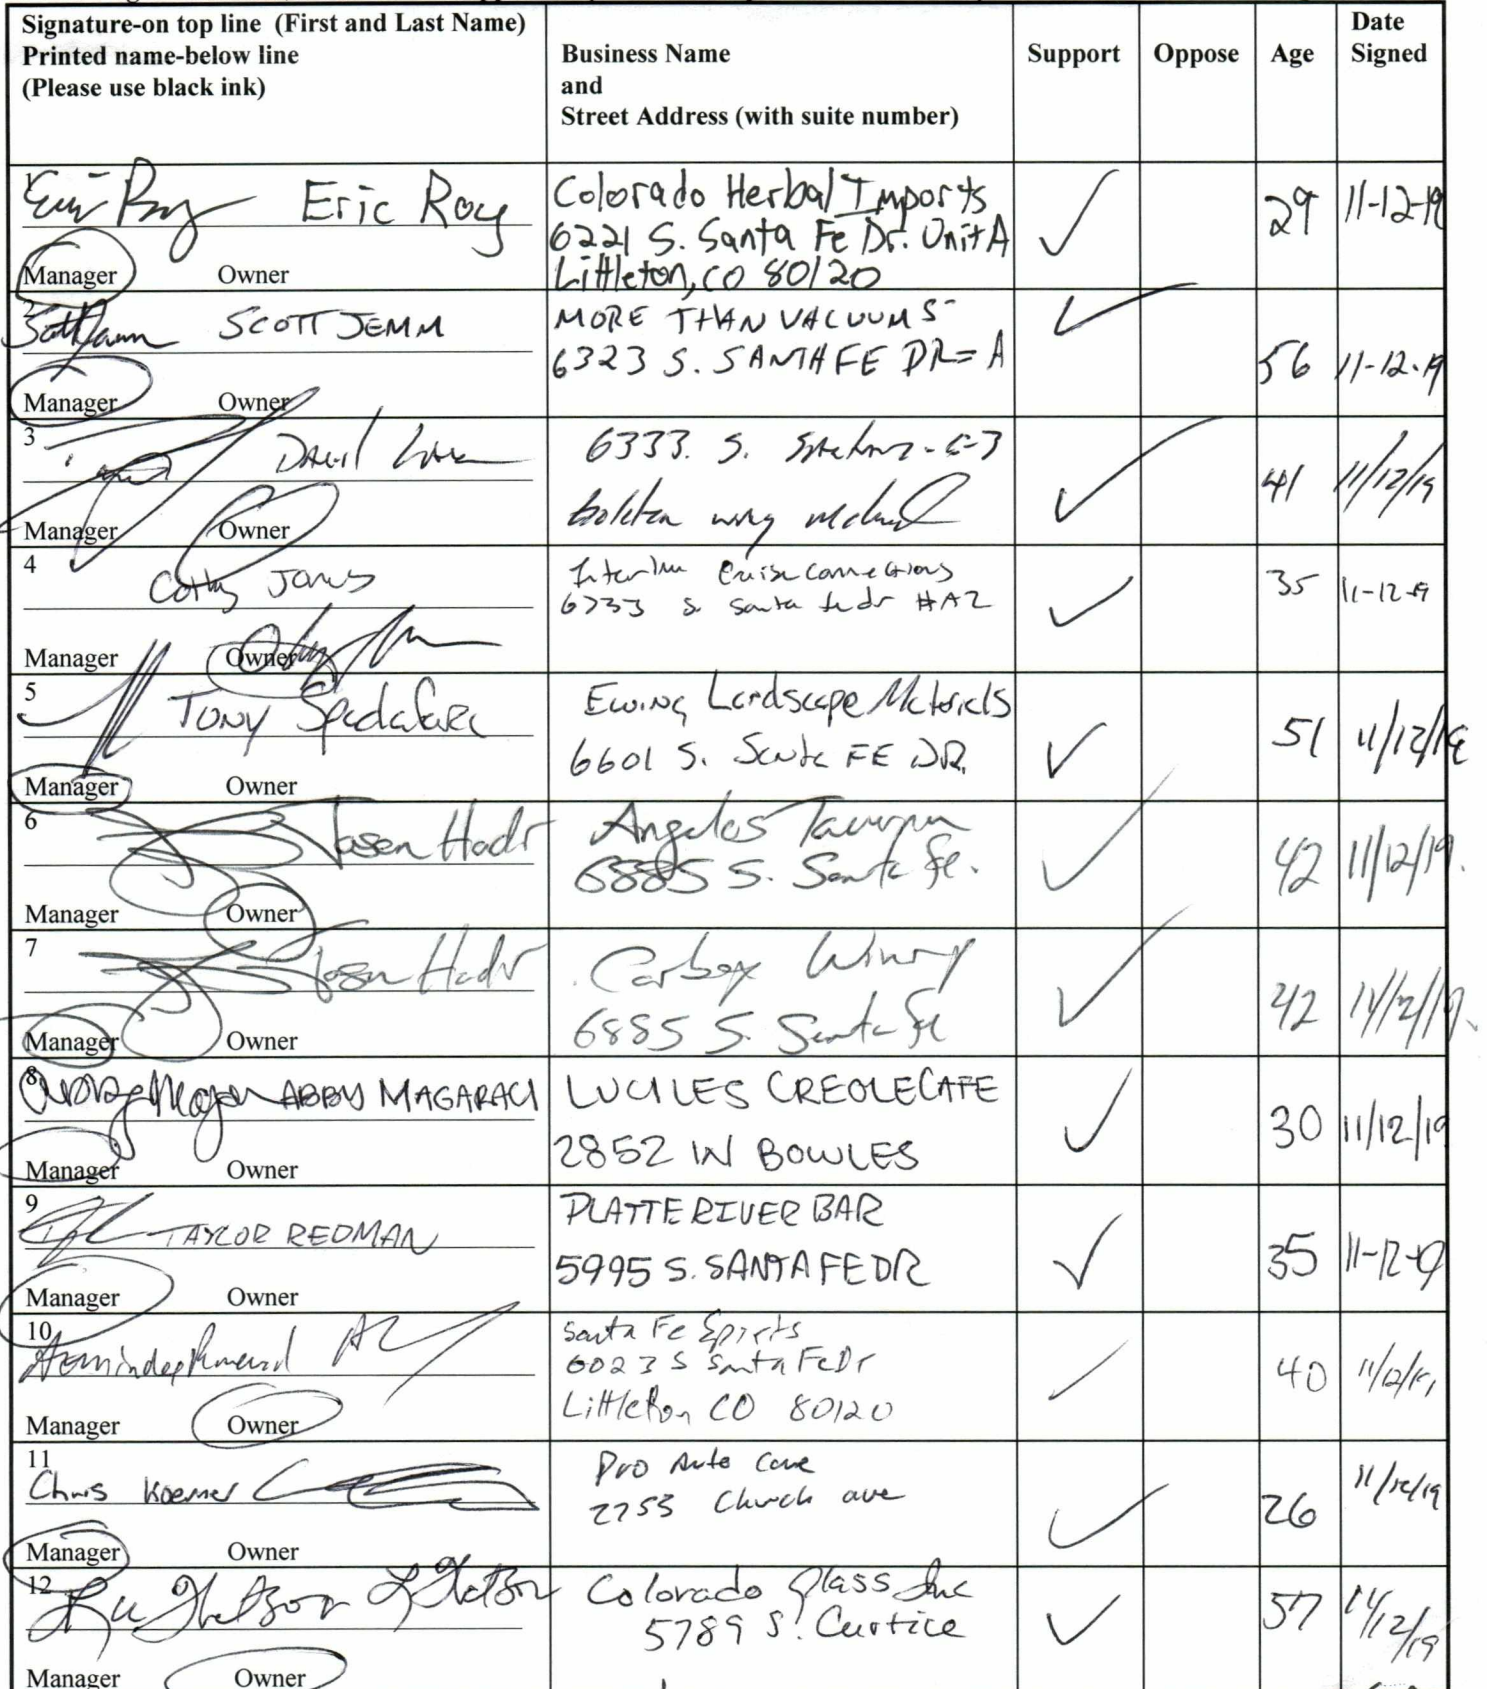 Signature-on top line (First and Last Name)
Printed name-below line
(Please use black ink)
Business Name
and
Street Address (with suite number)
Support
Oppose
Age
Date
Signed
1
Eric Roy
Manager Owner
Colorado Herbal Imports
6221 S. Santa Fe Dr. Unit A
Littleton, CO 80120
29
11-12-19
2
SCOTT JEMM
Manager Owner
MORE THAN VACUUMS
6323 S. SANTA FE DR = A
56
11-12-19
3
Manager Owner
6333. S.
41
11/12/19
4
Cathy Jones
Manager Owner
Cruise Connections
S Santa fe dr #A2
35
11-12-19
5
TONY Spadafora
Manager Owner
Ewing Landscape Materials
6601 S. Santa FE DR.
51
11/12/19
6
Jason
Manager Owner
Angelos Tavern
6885 S. Santa Fe.
42
11/12/19.
7
Jason
Manager Owner
Carboy Winry
6885 S. Santa Fe
42
11/12/19.
8
ABBY MAGARACI
Manager Owner
LUCILES CREOLE CAFE
2852 W BOWLES
30
11/12/19
9
TAYLOR REDMAN
Manager Owner
PLATTE RIVER BAR
5995 S. SANTA FE DR
35
11-12-19
10
Manager Owner
Santa Fe Spirits
6023 S Santa Fe Dr
Littleton CO 80120
40
11/12/19
11
Chris Koerner
Manager Owner
Pro Auto Care
2753 Church ave
26
11/12/19
12
Manager Owner
Colorado Glass Inc
5789 S. Curtice
57
11/12/19